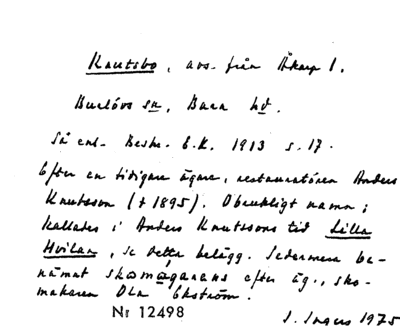 Knutsbo, avs. från Åkarp 1.
Burlövs sn, Bara hd.
Så enl. Beskr. E.K. 1913 s. 17.
Efter en tidigare ägare, restauratören Anders
Knutsson († 1895). Obrukligt namn;
kallades i Anders Knutssons tid Lilla
Hvilan, se detta belägg. Sedermera be-
nämnt skomagarens efter äg., sko-
makaren Ola Ekström.
Nr 12498 J. Ingers 1975